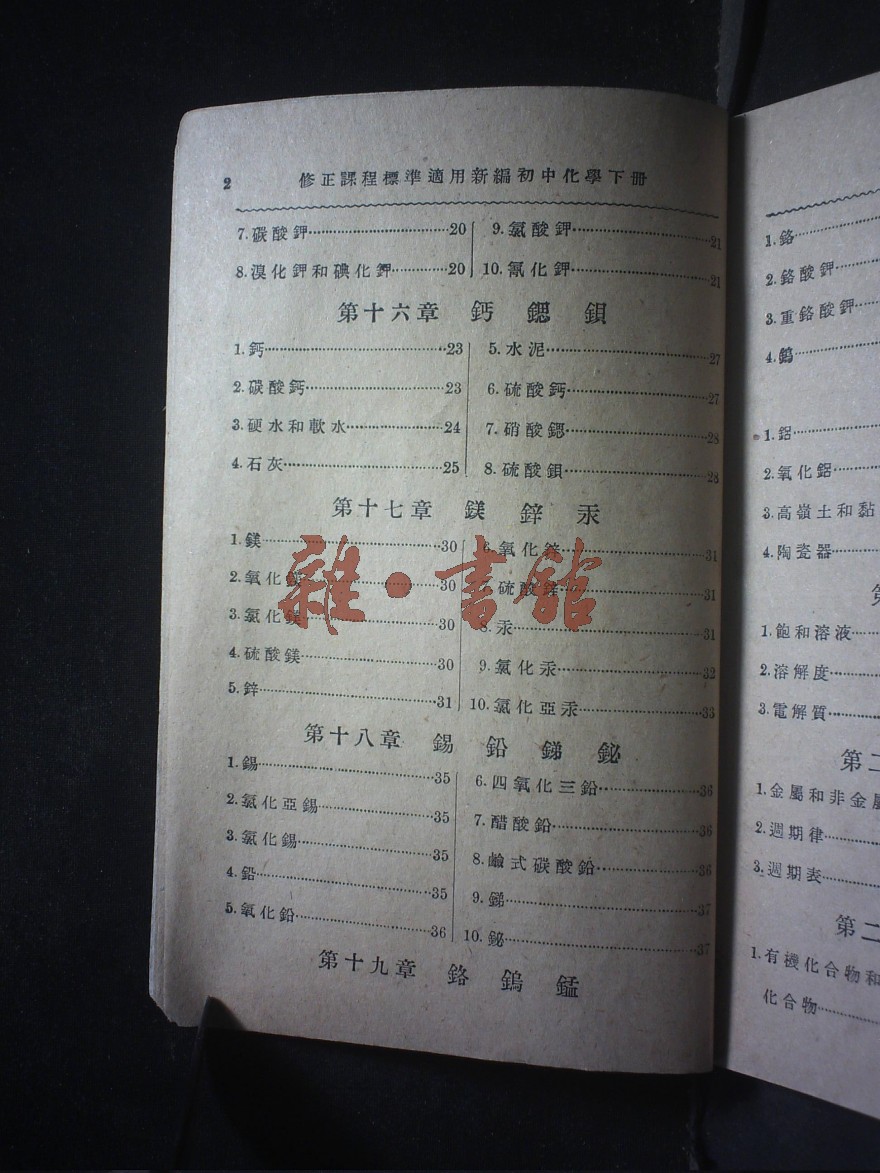 2 修正課程標準適用新編初中化學下冊
7. 碳酸鉀……20
8. 溴化鉀和碘化鉀……20
9. 氯酸鉀……21
10. 氰化鉀……21
第十六章 鈣 鍶 鋇
1. 鈣……23
2. 碳酸鈣……23
3. 硬水和軟水……24
4. 石灰……25
5. 水泥……27
6. 硫酸鈣……27
7. 硝酸鍶……28
8. 硫酸鋇……28
第十七章 鎂 鋅 汞
1. 鎂……30
2. 氧化鎂……30
3. 氯化鎂……30
4. 硫酸鎂……30
5. 鋅……31
6. 氧化鋅……31
7. 硫酸鋅……31
8. 汞……31
9. 氯化汞……32
10. 氯化亞汞……33
雜·書館
第十八章 錫 鉛 銻 鉍
1. 錫……35
2. 氯化亞錫……35
3. 氯化錫……35
4. 鉛……35
5. 氧化鉛……36
6. 四氧化三鉛……36
7. 醋酸鉛……36
8. 鹼式碳酸鉛……36
9. 銻……37
10. 鉍……37
第十九章 鉻 鎢 錳
1. 鉻……
2. 鉻酸鉀……
3. 重鉻酸鉀……
4. 鎢……
1. 鋁……
2. 氧化鋁……
3. 高嶺土和黏
4. 陶瓷器……
第
1. 飽和溶液……
2. 溶解度……
3. 電解質……
第二
1. 金屬和非金屬
2. 週期律……
3. 週期表……
第二
1. 有機化合物和
化合物……